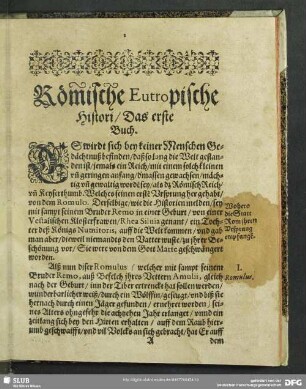 Römische Eutropische
Histori / Das erste
Buch.
ES wirdt sich bey keiner Menschen Ge-
dächtnuß befinden / daß so lang die Welt gestan-
den ist / jemals ein Reich / mit einem solchē kleinen
vñ geringen anfang / dmassen gewachsen / mäch-
tig vñ gewaltig wordē sey / als dz Römisch Reich /
vñ Keyserthumb. Welches seinen erste Vrsprung her gehabt /
von dem Romulo. Derselbige / wie die Historien melden / sey
mit sampt seinem Bruder Remo in einer Geburt / von einer
Vestalischen Klosterfrawen / Rhea Siluia genant / ein Toch-
ter deß Königs Numitoris, auff die Welt kommen / vnd gab
man aber / dieweil niemandes den Vatter wuste / zu ihrer Be-
schönung vor / Sie wer von dem Gott Marte geschwängert
worden.
Woher
die Statt
Rom ihren
Vrsprung
empfangē.
Alß nun diser Romulus / welcher mit sampt seinem
Bruder Remo, auß Befelch ihres Vettern Amulii, gleich
nach der Geburt / inn der Tiber ertrenckt hat sollen werden /
wunderbarlicher weiß / durch ein Wölffin / gesäugt / vnd biß sie
hernach durch einen Jäger gefunden / ernehret worden / seines
Alters ohngefehr die achtzehen Jahr erlanget / vnnd ein
zeitlang sich bey den Hirten erhalten / auff dem Raub hier-
und geschwaifft / vnd vil Volcks an sich gebracht / hat Er auff
I.
Romulus.
A
dem
SLUB
DFG